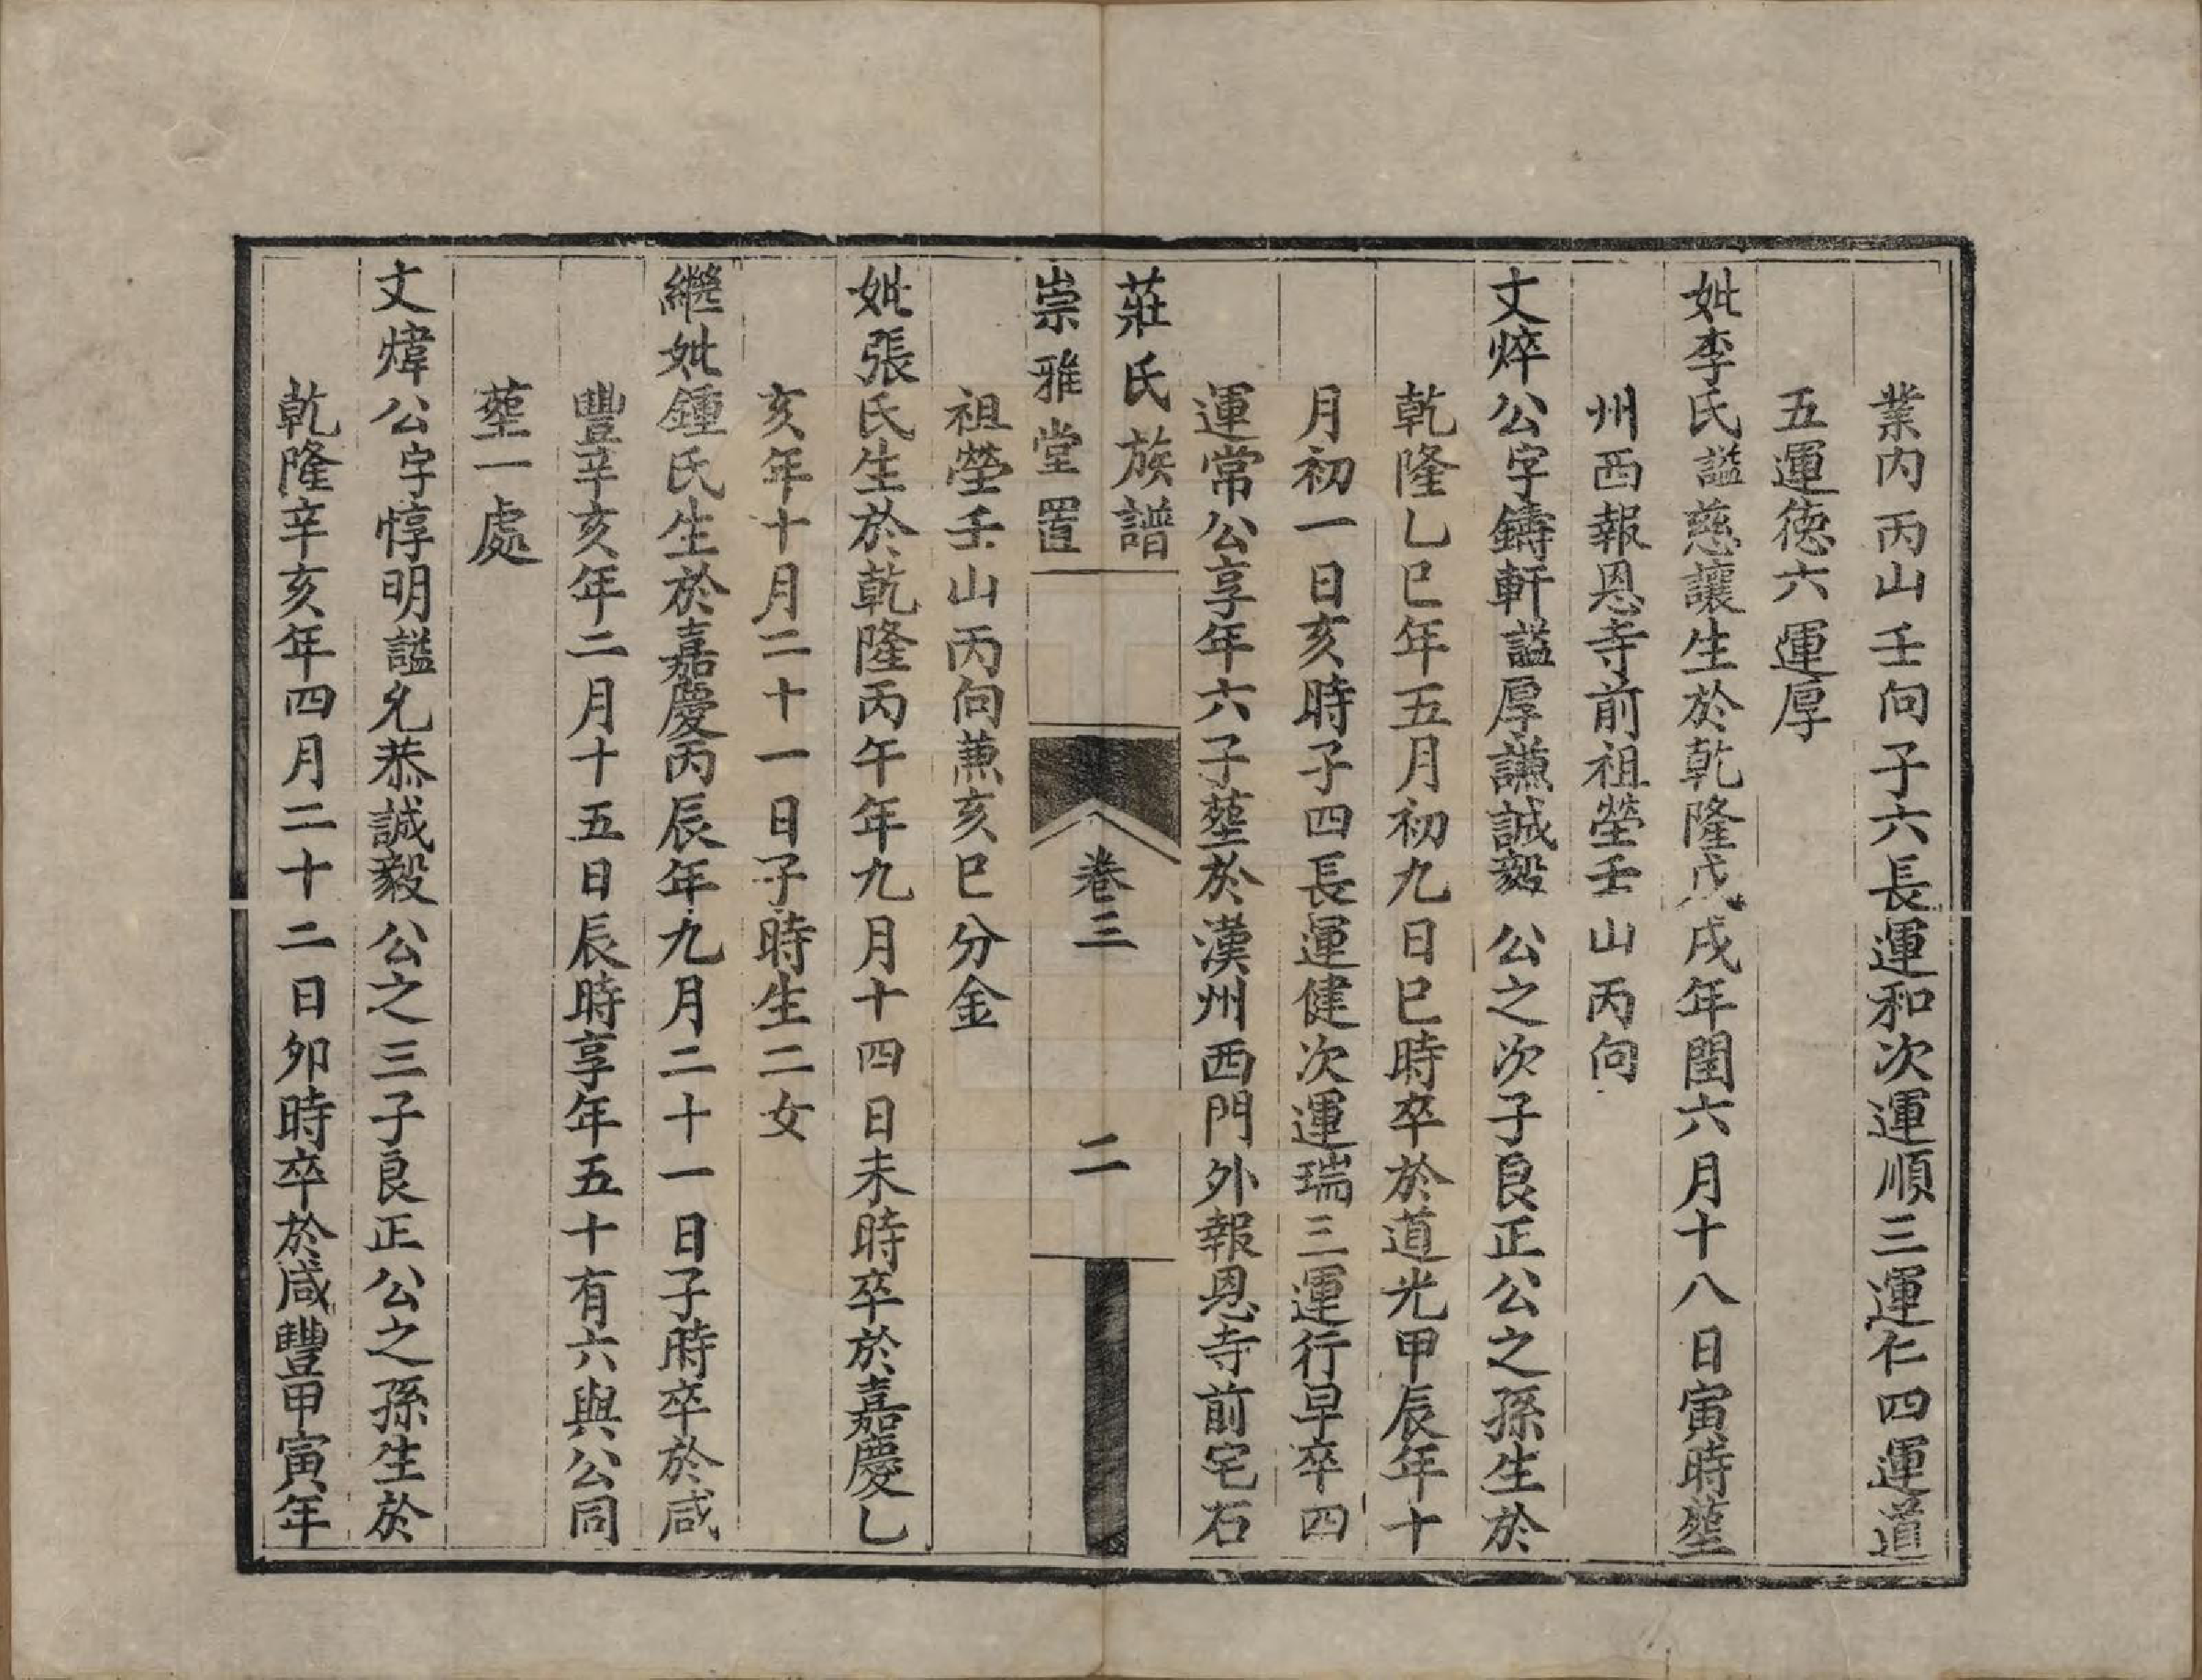 業內丙山壬向子六長運和次運順三運仁四運道
五運德六運厚
妣李氏諡慈讓生於乾隆戊戌年閏六月十八日寅時塟
州西報恩寺前祖塋壬山丙向
文焠公字鑄軒諡厚謙誠毅公之次子良正公之孫生於
乾隆乙巳年五月初九日巳時卒於道光甲辰年十
月初一日亥時子四長運健次運瑞三運行早卒四
運常公享年六子塟於漢州西門外報恩寺前宅石
莊氏族譜
卷三
二
崇雅堂置
祖塋壬山丙向蒹亥巳分金
妣張氏生於乾隆丙午年九月十四日未時卒於嘉慶乙
亥年十月二十一日子時生二女
繼妣鍾氏生於嘉慶丙辰年九月二十一日子時卒於咸
豐辛亥年二月十五日辰時享年五十有六與公同
塟一處
文煒公字惇明諡允恭誠毅公之三子良正公之孫生於
乾隆辛亥年四月二十二日卯時卒於咸豐甲寅年